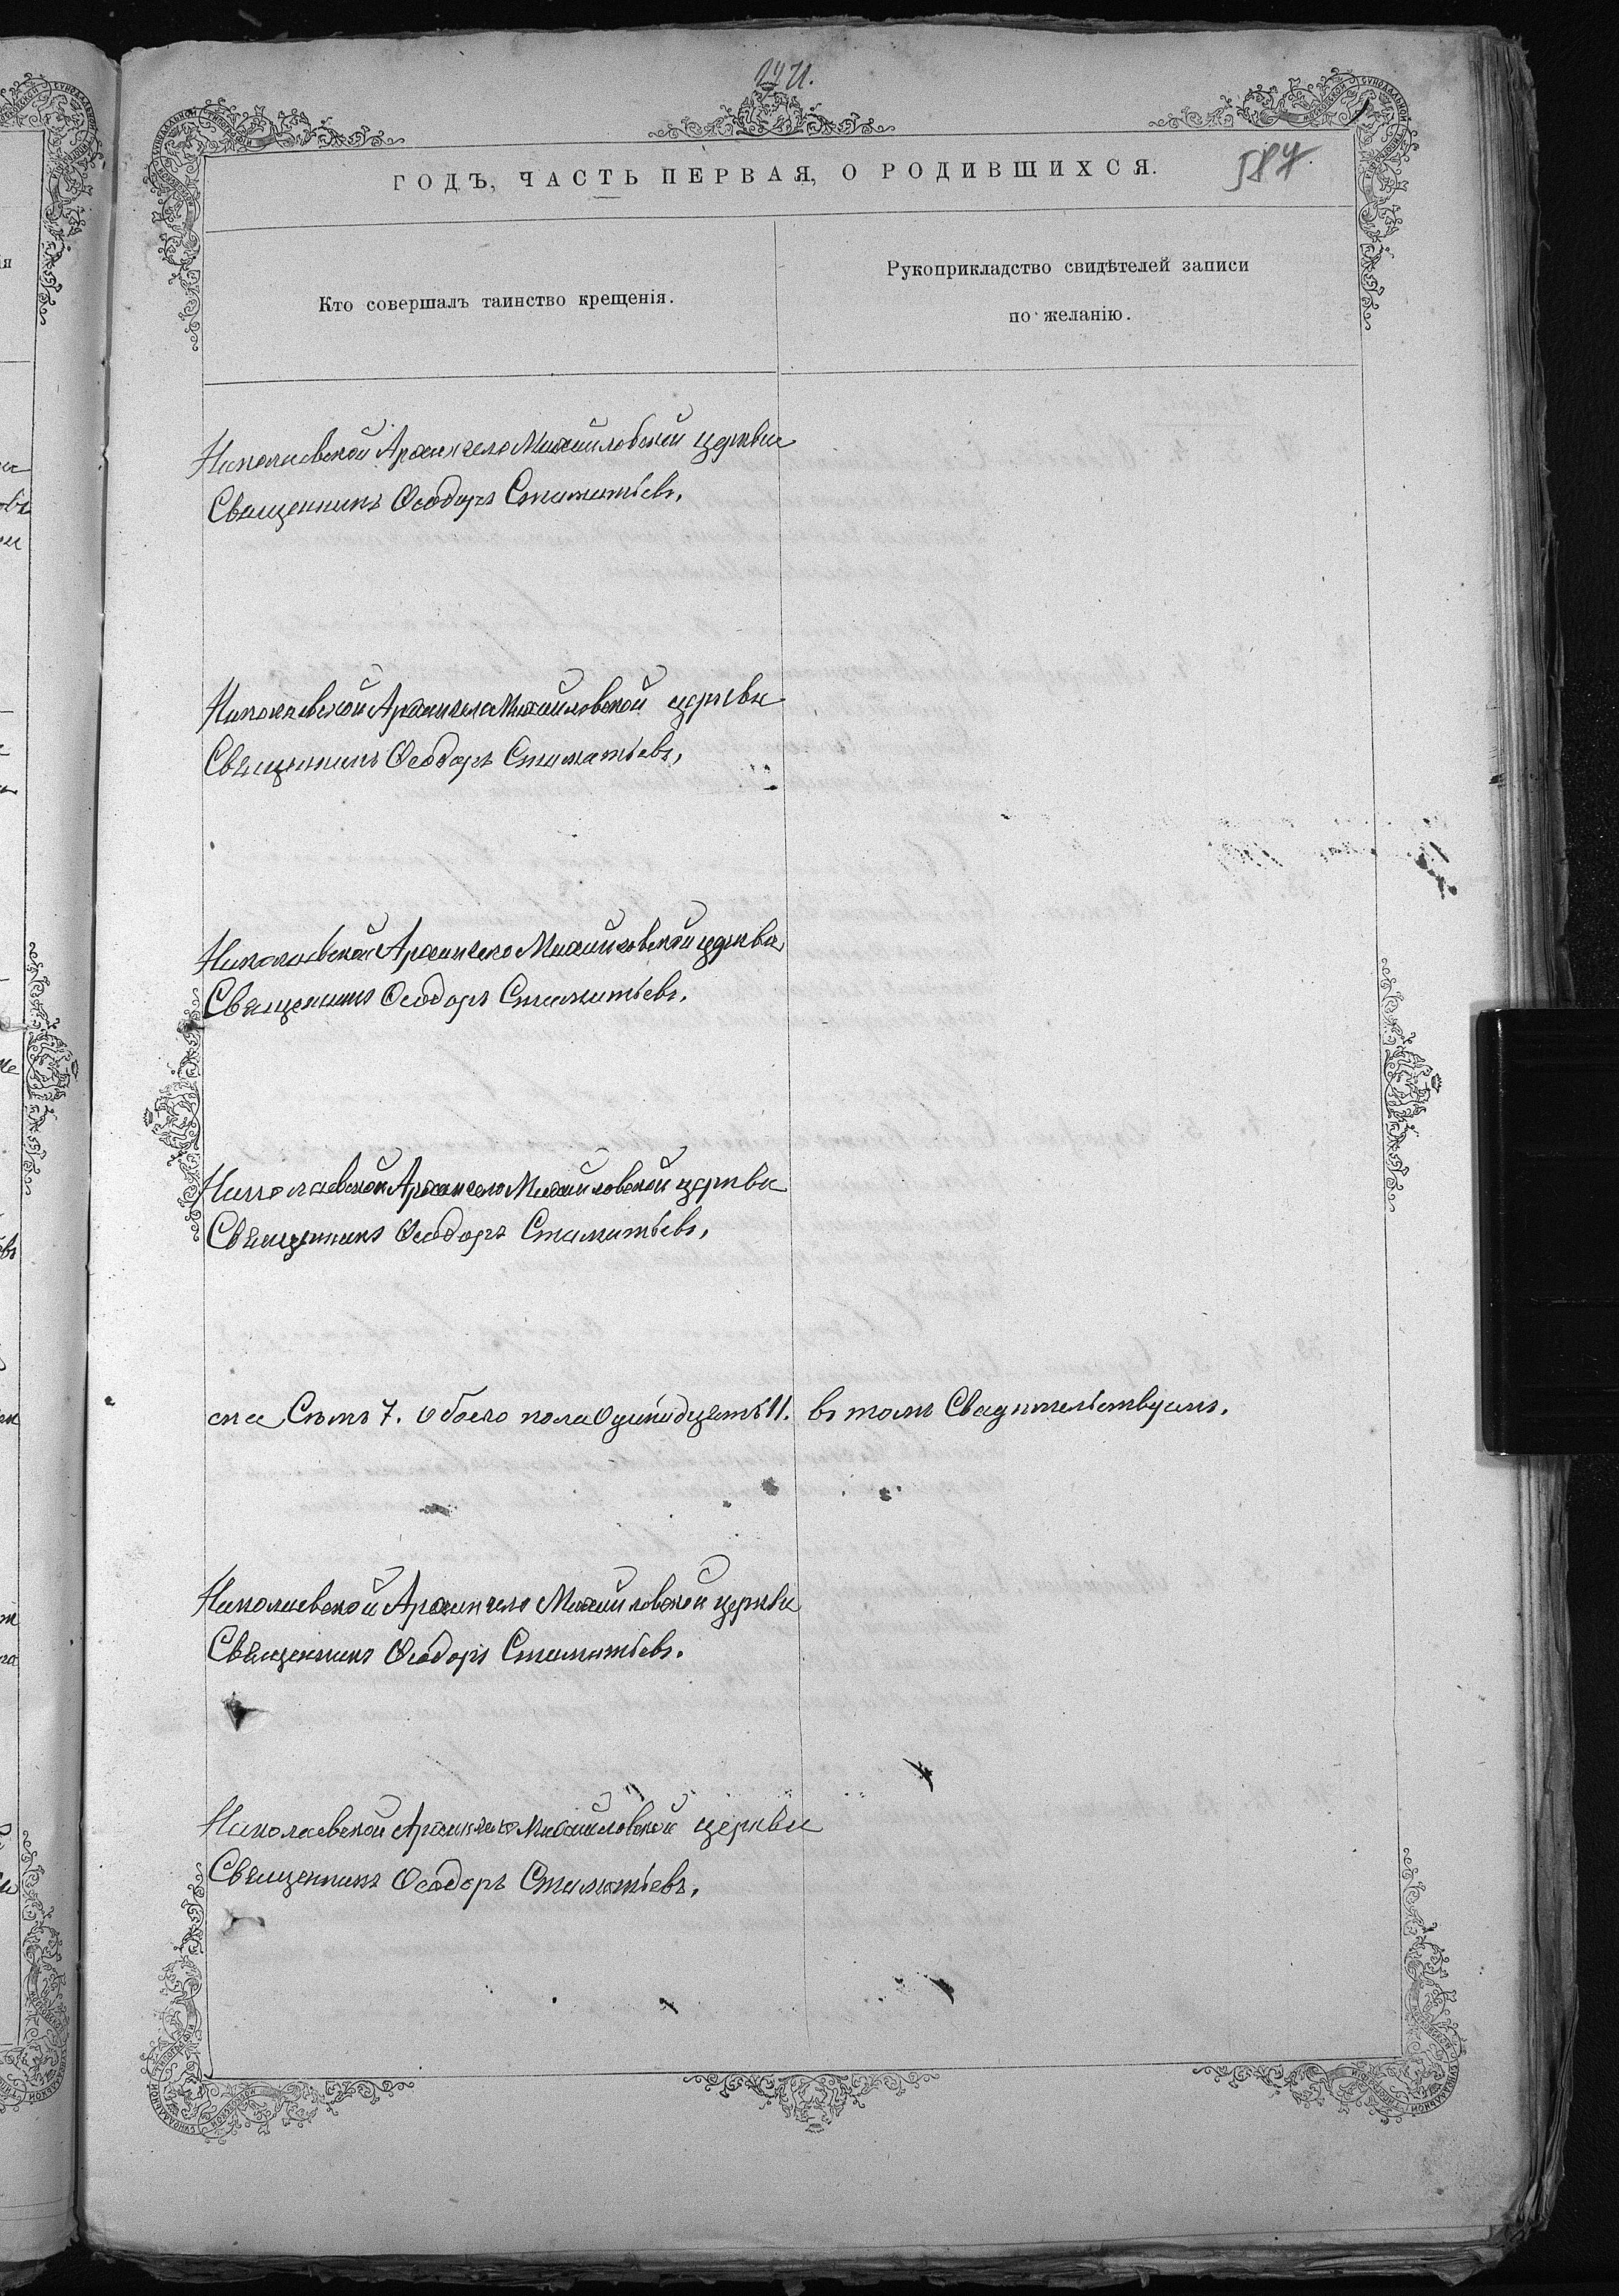 ГОДЪ, ЧАСТЬ ПЕРВАЯ, О РОДИВШИХСЯ.
587.
Кто совершалъ таинство крещенія.
Рукоприкладство свидѣтелей записи
по желанію.
Николаевской Архангело Михаиловской церкви
Священникъ Ѳеодоръ Стаматьевъ.
Николаевской Архангело Михаиловской церкви
Священникъ Ѳеодоръ Стаматьевъ,
Николаевской Архангело Михаиловской церкви
Священникъ Ѳеодоръ Стаматьевъ.
Николаевской Архангело Михаиловской церкви
Священникъ Ѳеодоръ Стаматьевъ,
ска Семъ 7. обоего пола Одинадцать 11. въ томъ Свидетельствуемъ.
Николаевской Архангело Михаиловской церкви
Священникъ Ѳеодоръ Стаматьевъ.
Николаевской Архангело Михаиловской церкви
Священникъ Ѳеодоръ Стаматьевъ.